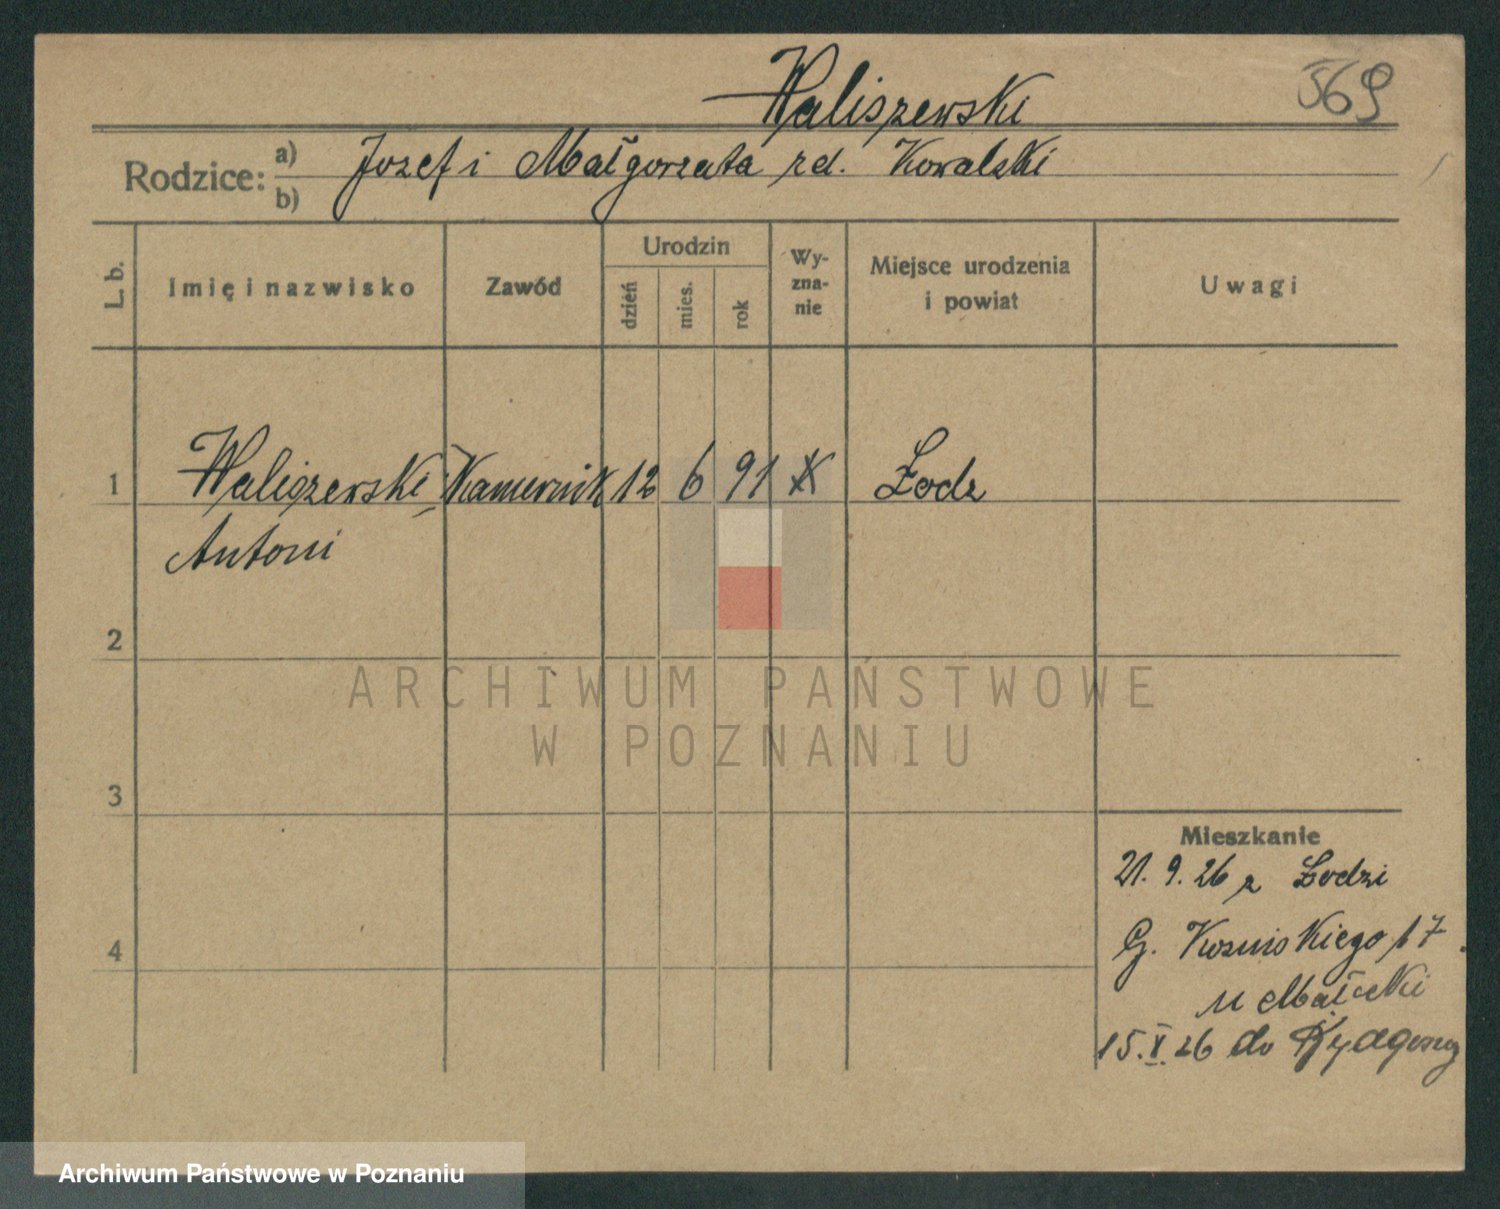 Waliszewski
569
Rodzice: a) Jozef i Małgorzata zd. Kowalski
b)
L. b.
Imię i nazwisko
Zawód
Urodzin
dzień
mies.
rok
Wy-
zna-
nie
Miejsce urodzenia
i powiat
Uwagi
1 Waliszewski 12 6 91 K Łodz
Antoni
2
3
4
Mieszkanie
21. 9. 26 z Łodzi
G. 17
u Małecki
15. X. 26 do Bydgoszcz
ARCHIWUM PAŃSTWOWE
W POZNANIU
Archiwum Państwowe w Poznaniu